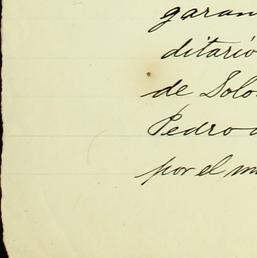 garan
ditario
de Solo
Pedro
por el m